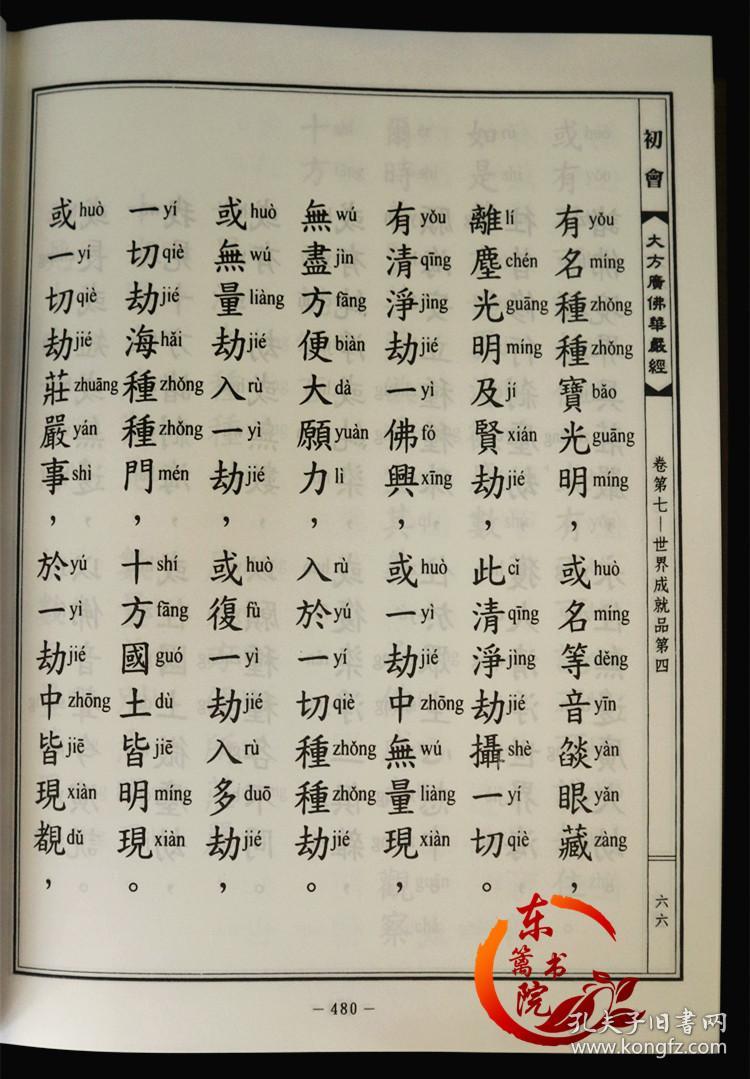 初會
大方廣佛華嚴經
卷第七—世界成就品第四
六六
有yǒu名míng種zhǒng種zhǒng寶bǎo光guāng明míng，或huò名míng等děng音yīn燄yàn眼yǎn藏zàng，
離lí塵chén光guāng明míng及jí賢xián劫jié，此cǐ清qīng淨jìng劫jié攝shè一yí切qiè。
有yǒu清qīng淨jìng劫jié一yì佛fó興xīng，或huò一yì劫jié中zhōng無wú量liàng現xiàn，
無wú盡jìn方fāng便biàn大dà願yuàn力lì，入rù於yú一yí切qiè種zhǒng種zhǒng劫jié。
或huò無wú量liàng劫jié入rù一yì劫jié，或huò復fù一yì劫jié入rù多duō劫jié，
一yí切qiè劫jié海hǎi種zhǒng種zhǒng門mén，十shí方fāng國guó土dù皆jiē明míng現xiàn。
或huò一yí切qiè劫jié莊zhuāng嚴yán事shì，於yú一yì劫jié中zhōng皆jiē現xiàn覩dǔ，
－480－
东篱书院
孔夫子旧書网
www.kongfz.com